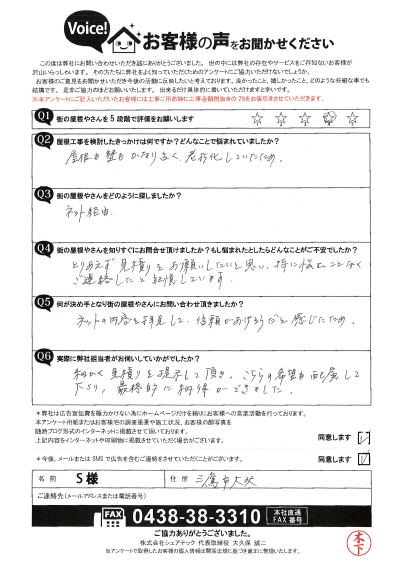 Voice!
お客様の声をお聞かせください
この度は弊社にお問い合わせいただき誠にありがとうございました。世の中には弊社の存在やサービスをご存知ないお客様が
沢山いらっしゃいます。その方たちに弊社をよく知っていただくためのアンケートにご協力いただけないでしょうか。
お客様のご意見をお聞かせいただき今後の活動に反映したいと考えております。良かったこと、嬉しかったこと、どのような些細な事でも
結構です。是非ご協力のほどお願いいたします。出来るだけ具体的に書いていただけますと幸いです。
※本アンケートにご記入いただいたお客様には工事ご用命時に工事金額税抜きの2%をお値引きさせていただきます。
Q1 街の屋根やさんを5段階で評価をお願いします ☆ ☆ ☆ ☆ ☆
Q2 屋根工事を検討したきっかけは何ですか?どんなことで悩まれていましたか?
屋根も壁もかなり古く、老朽化していたため。
Q3 街の屋根やさんをどのように探しましたか?
ネット経由.
Q4 街の屋根やさんを知りすぐにお問合せ頂けましたか?もし悩まれたとしたらどんなことがご不安でしたか?
とりあえず見積りをお願いしたいと思い、特に悩むことなく
ご連絡したと記憶しています
Q5 何が決め手となり街の屋根やさんにお問い合わせ頂きましたか?
ネットの内容を拝見して、信頼があげそうだと感じたため。
Q6 実際に弊社担当者がお伺いしていかがでしたか?
細かく見積りを提示して頂き、こちらの希望も配慮して
下さり、最終的に納得ができました。
*弊社は広告宣伝費を極力かけない為にホームページだけを頼りにお客様への営業活動を行っております。
本アンケート用紙またはお客様宅の調査風景や施工状況、お客様の顔写真を
随時ブログ形式のインターネットに掲載させて頂いております。
上記内容をインターネットや印刷物に掲載させていただく場合がございます。
同意します
*今後、メールまたは SMS で広告を含むご連絡をさせていただくことがございます。
同意します
名前 S様 住所
ご連絡先(メールアドレスまたは電話番号)
FAX 0438-38-3310 本社直通 FAX 番号
ご協力ありがとうございました。
株式会社シェアテック 代表取締役 大久保 誠二
当アンケートで取得したお客様の個人情報は関係法規に基づき厳正に管理いたします。
木下